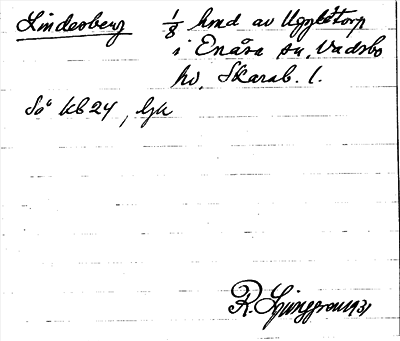 Lindesberg 1/8 hmd av Uggletorp
i Enåsa sn, Vadsbo
hd, Skarab. l.
So kb 24, ljh
R. Ljunggren 1931